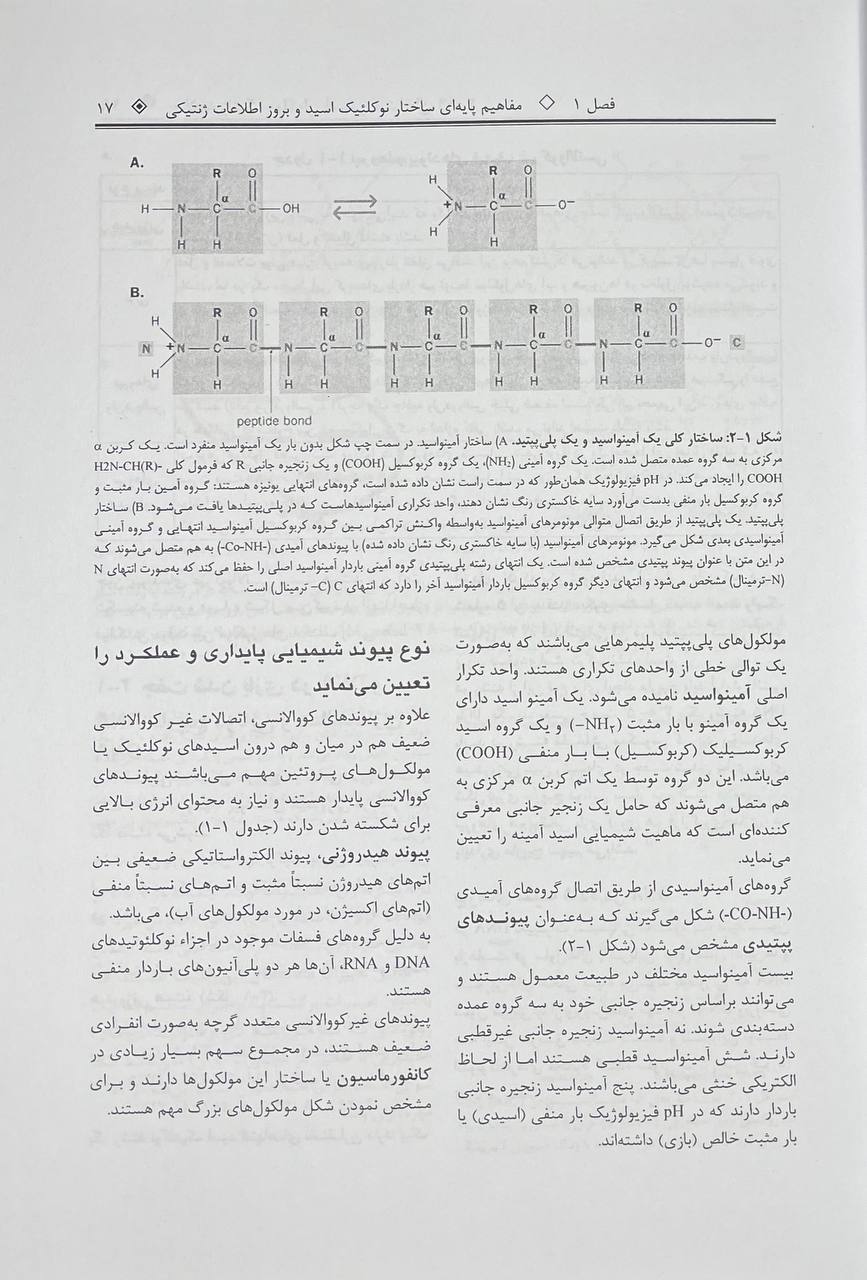 فصل ۱ ◇ مفاهیم پایه‌ای ساختار نوکلئیک اسید و بروز اطلاعات ژنتیکی ۱۷
A.
R O
H N C α C OH
H H
H R O
+N C α C O−
H H
B.
H R O R O R O R O R O
N +N C α C N C α C N C α C N C α C N C α C O− C
H H H H H H H H H H
peptide bond
شکل ۱-۲: ساختار کلی یک آمینواسید و یک پلی‌پپتید. A) ساختار آمینواسید. در سمت چپ شکل بدون بار یک آمینواسید منفرد است. یک کربن α
مرکزی به سه گروه عمده متصل شده است. یک گروه آمینی (NH₂)، یک گروه کربوکسیل (COOH) و یک زنجیره جانبی R که فرمول کلی H2N-CH(R)-
COOH را ایجاد می‌کند. در pH فیزیولوژیک همان‌طور که در سمت راست نشان داده شده است، گروه‌های انتهایی یونیزه هستند: گروه آمین بار مثبت و
گروه کربوکسیل بار منفی بدست می‌آورد سایه خاکستری رنگ نشان دهند، واحد تکراری آمینواسیدهاست که در پلی‌پپتیدها یافت می‌شود. B) ساختار
پلی‌پپتید. یک پلی‌پپتید از طریق اتصال متوالی مونومرهای آمینواسید به‌واسطه واکنش تراکمی بین گروه کربوکسیل آمینواسید انتهایی و گروه آمینی
آمینواسیدی بعدی شکل می‌گیرد. مونومرهای آمینواسید (با سایه خاکستری رنگ نشان داده شده) با پیوندهای آمیدی (-Co-NH-) به هم متصل می‌شوند که
در این متن با عنوان پیوند پپتیدی مشخص شده است. یک انتهای رشته پلی‌پپتیدی گروه آمینی باردار آمینواسید اصلی را حفظ می‌کند که به‌صورت انتهای N
(N-ترمینال) مشخص می‌شود و انتهای دیگر گروه کربوکسیل باردار آمینواسید آخر را دارد که انتهای C (C- ترمینال) است.
مولکول‌های پلی‌پپتید پلیمرهایی می‌باشند که به‌صورت
یک توالی خطی از واحدهای تکراری هستند. واحد تکرار
اصلی آمینواسید نامیده می‌شود. یک آمینو اسید دارای
یک گروه آمینو با بار مثبت (NH₂–) و یک گروه اسید
کربوکسیلیک (کربوکسیل) با بار منفی (COOH)
می‌باشد. این دو گروه توسط یک اتم کربن α مرکزی به
هم متصل می‌شوند که حامل یک زنجیر جانبی معرفی
کننده‌ای است که ماهیت شیمیایی اسید آمینه را تعیین
می‌نماید.
گروه‌های آمینواسیدی از طریق اتصال گروه‌های آمیدی
(-CO-NH-) شکل می‌گیرند که به‌عنوان پیوندهای
پپتیدی مشخص می‌شود (شکل ۱-۲).
بیست آمینواسید مختلف در طبیعت معمول هستند و
می‌توانند براساس زنجیره جانبی خود به سه گروه عمده
دسته‌بندی شوند. نه آمینواسید زنجیره جانبی غیرقطبی
دارند. شش آمینواسید قطبی هستند اما از لحاظ
الکتریکی خنثی می‌باشند. پنج آمینواسید زنجیره جانبی
باردار دارند که در pH فیزیولوژیک بار منفی (اسیدی) یا
بار مثبت خالص (بازی) داشته‌اند.
نوع پیوند شیمیایی پایداری و عملکرد را
تعیین می‌نماید
علاوه بر پیوندهای کووالانسی، اتصالات غیر کووالانسی
ضعیف هم در میان و هم درون اسیدهای نوکلئیک یا
مولکول‌های پروتئین مهم می‌باشند پیوندهای
کووالانسی پایدار هستند و نیاز به محتوای انرژی بالایی
برای شکسته شدن دارند (جدول ۱-۱).
پیوند هیدروژنی، پیوند الکترواستاتیکی ضعیفی بین
اتم‌های هیدروژن نسبتاً مثبت و اتم‌های نسبتاً منفی
(اتم‌های اکسیژن، در مورد مولکول‌های آب)، می‌باشد.
به دلیل گروه‌های فسفات موجود در اجزاء نوکلئوتیدهای
DNA و RNA، آن‌ها هر دو پلی‌آنیون‌های باردار منفی
هستند.
پیوندهای غیرکووالانسی متعدد گرچه به‌صورت انفرادی
ضعیف هستند، در مجموع سهم بسیار زیادی در
کانفورماسیون یا ساختار این مولکول‌ها دارند و برای
مشخص نمودن شکل مولکول‌های بزرگ مهم هستند.